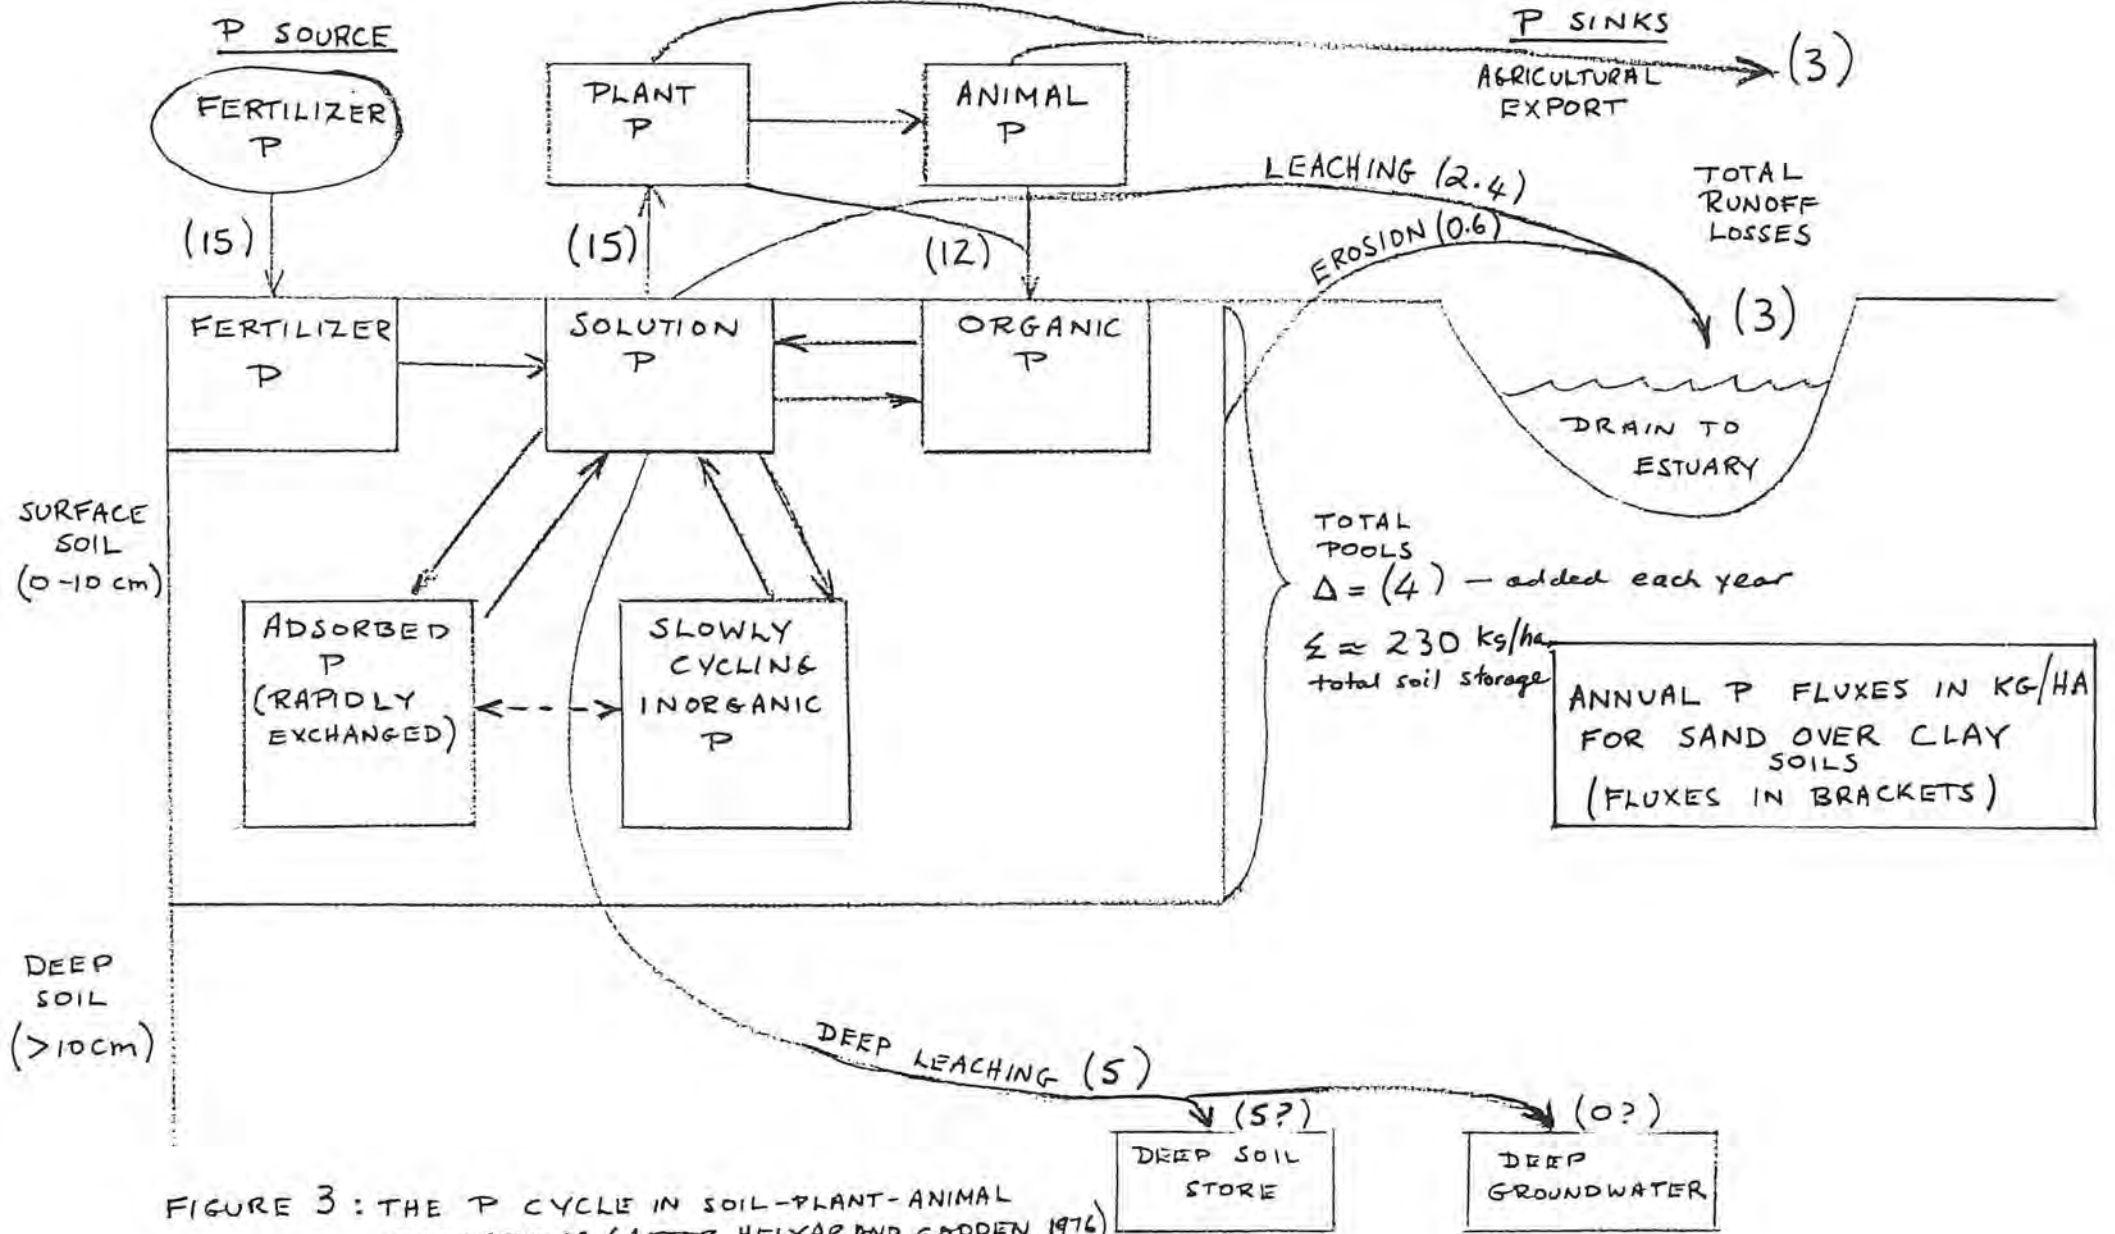 P SOURCE
FERTILIZER
P
(15)
PLANT
P
ANIMAL
P
P SINKS
(3)
AGRICULTURAL
EXPORT
(15)
(12)
LEACHING (2.4)
EROSION (0.6)
TOTAL
RUNOFF
LOSSES
(3)
FERTILIZER
P
SOLUTION
P
ORGANIC
P
DRAIN TO
ESTUARY
SURFACE
SOIL
(0-10 cm)
ADSORBED
P
(RAPIDLY
EXCHANGED)
SLOWLY
CYCLING
INORGANIC
P
TOTAL
POOLS
Δ = (4) - added each year
Σ ≈ 230 kg/ha
total soil storage
ANNUAL P FLUXES IN KG/HA
FOR SAND OVER CLAY
SOILS
(FLUXES IN BRACKETS)
DEEP
SOIL
(>10cm)
DEEP LEACHING (5)
(5?)
(0?)
DEEP SOIL
STORE
DEEP
GROUNDWATER
FIGURE 3: THE P CYCLE IN SOIL-PLANT-ANIMAL
(AFTER HELYAR AND GODDEN 1976)